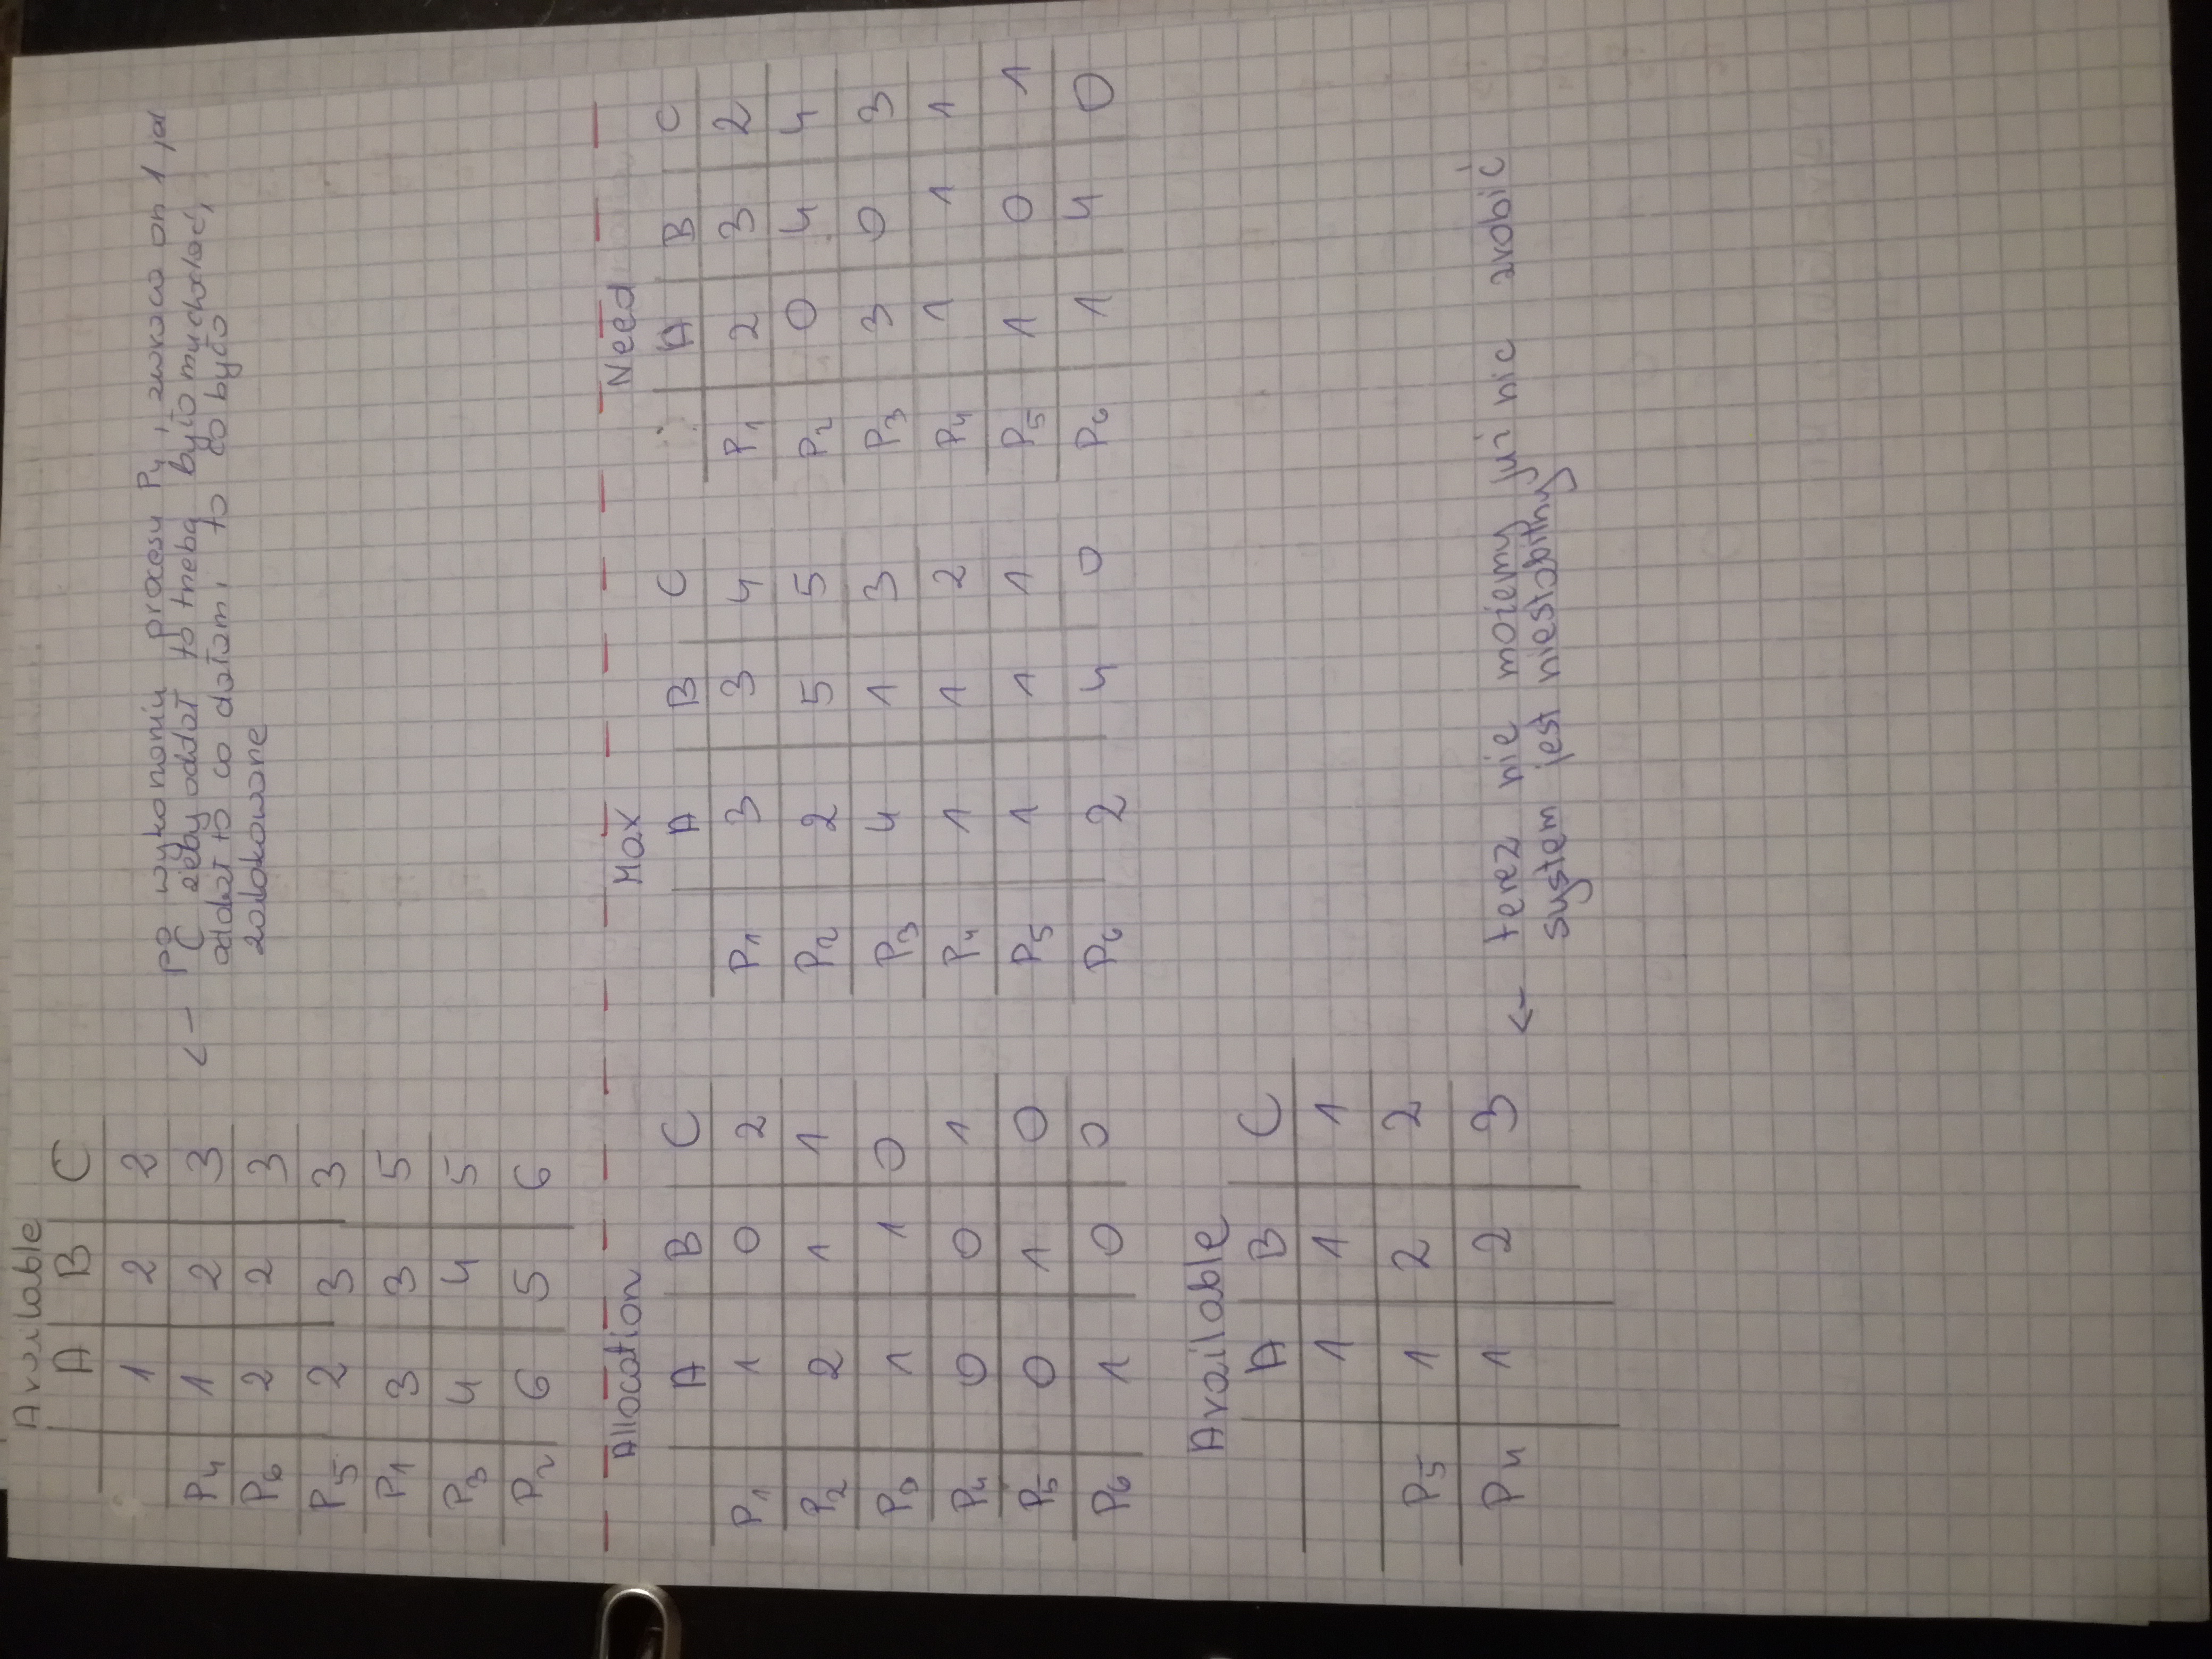 Available
A B C
1 2 2
P4 1 2 3
P6 2 2 3
P5 2 3 3
P1 3 3 5
P3 4 4 5
P2 6 5 6
← Po wykonaniu procesu P4, zwraca on 1 jed
C żeby oddał to trzeba było mu chociać,
oddał to co dałam, to co było
zalokowane
Allocation
A B C
P1 1 0 2
P2 2 1 1
P3 1 1 0
P4 0 0 1
P5 0 1 0
P6 1 0 0
Max
A B C
P1 3 3 4
P2 2 5 5
P3 4 1 3
P4 1 1 2
P5 1 1 1
P6 2 4 0
Need
A B C
P1 2 3 2
P2 0 4 4
P3 3 0 3
P4 1 1 1
P5 1 0 1
P6 1 4 0
Available
A B C
1 1 1
P5 1 2 2
P4 1 2 3
← terez nie możemy już nic zrobić
system jest niestabilny